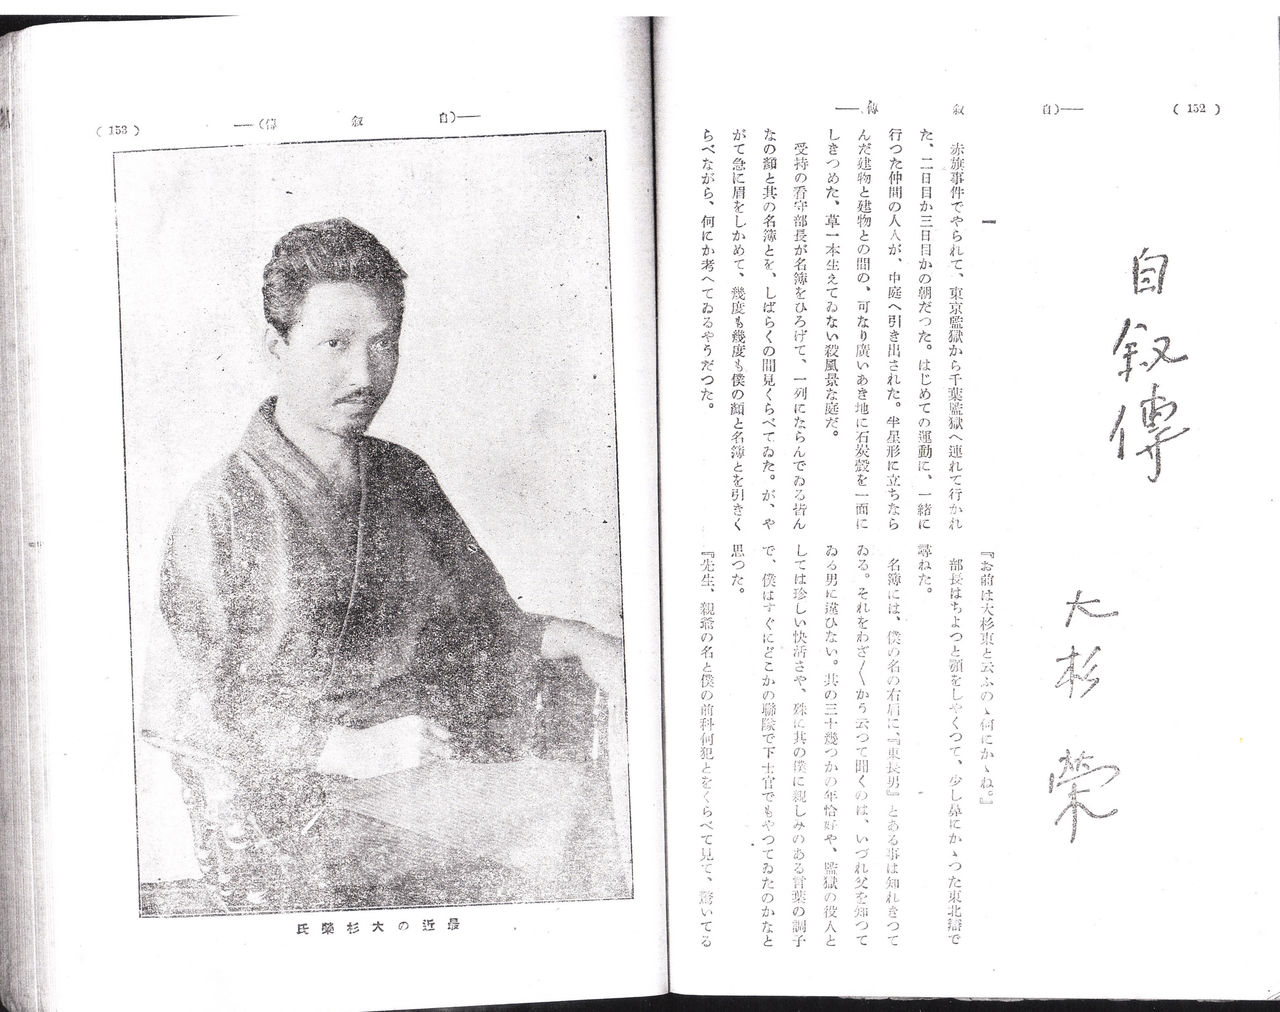 (152)
——(自叙傳)——
自叙傳
大杉榮
一
赤旗事件でやられて、東京監獄から千葉監獄へ連れて行かれ
た、二日目か三日目かの朝だつた。はじめての運動に、一緒に
行つた仲間の人人が、中庭へ引き出された。半星形に立ちなら
んだ建物と建物との間の、可なり廣いあき地に石炭殼を一面に
しきつめた、草一本生えてゐない殺風景な庭だ。
受持の看守部長が名簿をひろげて、一列にならんでゐる皆ん
なの顏と其の名簿とを、しばらくの間見くらべてゐた。が、や
がて急に眉をしかめて、幾度も幾度も僕の顏と名簿とを引きく
らべながら、何にか考へてゐるやうだつた。
『お前は大杉東と云ふのゝ何にかゝね。』
部長はちよつと顎をしやくつて、少し鼻にかゝつた東北辯で
尋ねた。
名簿には、僕の名の右肩に、『東長男』とある事は知れきつて
ゐる。それをわざ〳〵かう云つて聞くのは、いづれ父を知つて
ゐる男に違ひない。其の三十幾つかの年恰好や、監獄の役人と
しては珍しい快活さや、殊に其の僕に親しみのある言葉の調子
で、僕はすぐにどこかの聯隊で下士官でもやつてゐたのかなと
思つた。
『先生、親爺の名と僕の前科何犯とをくらべて見て、驚いてる
(153)
——(自叙傳)——
最近の大杉榮氏